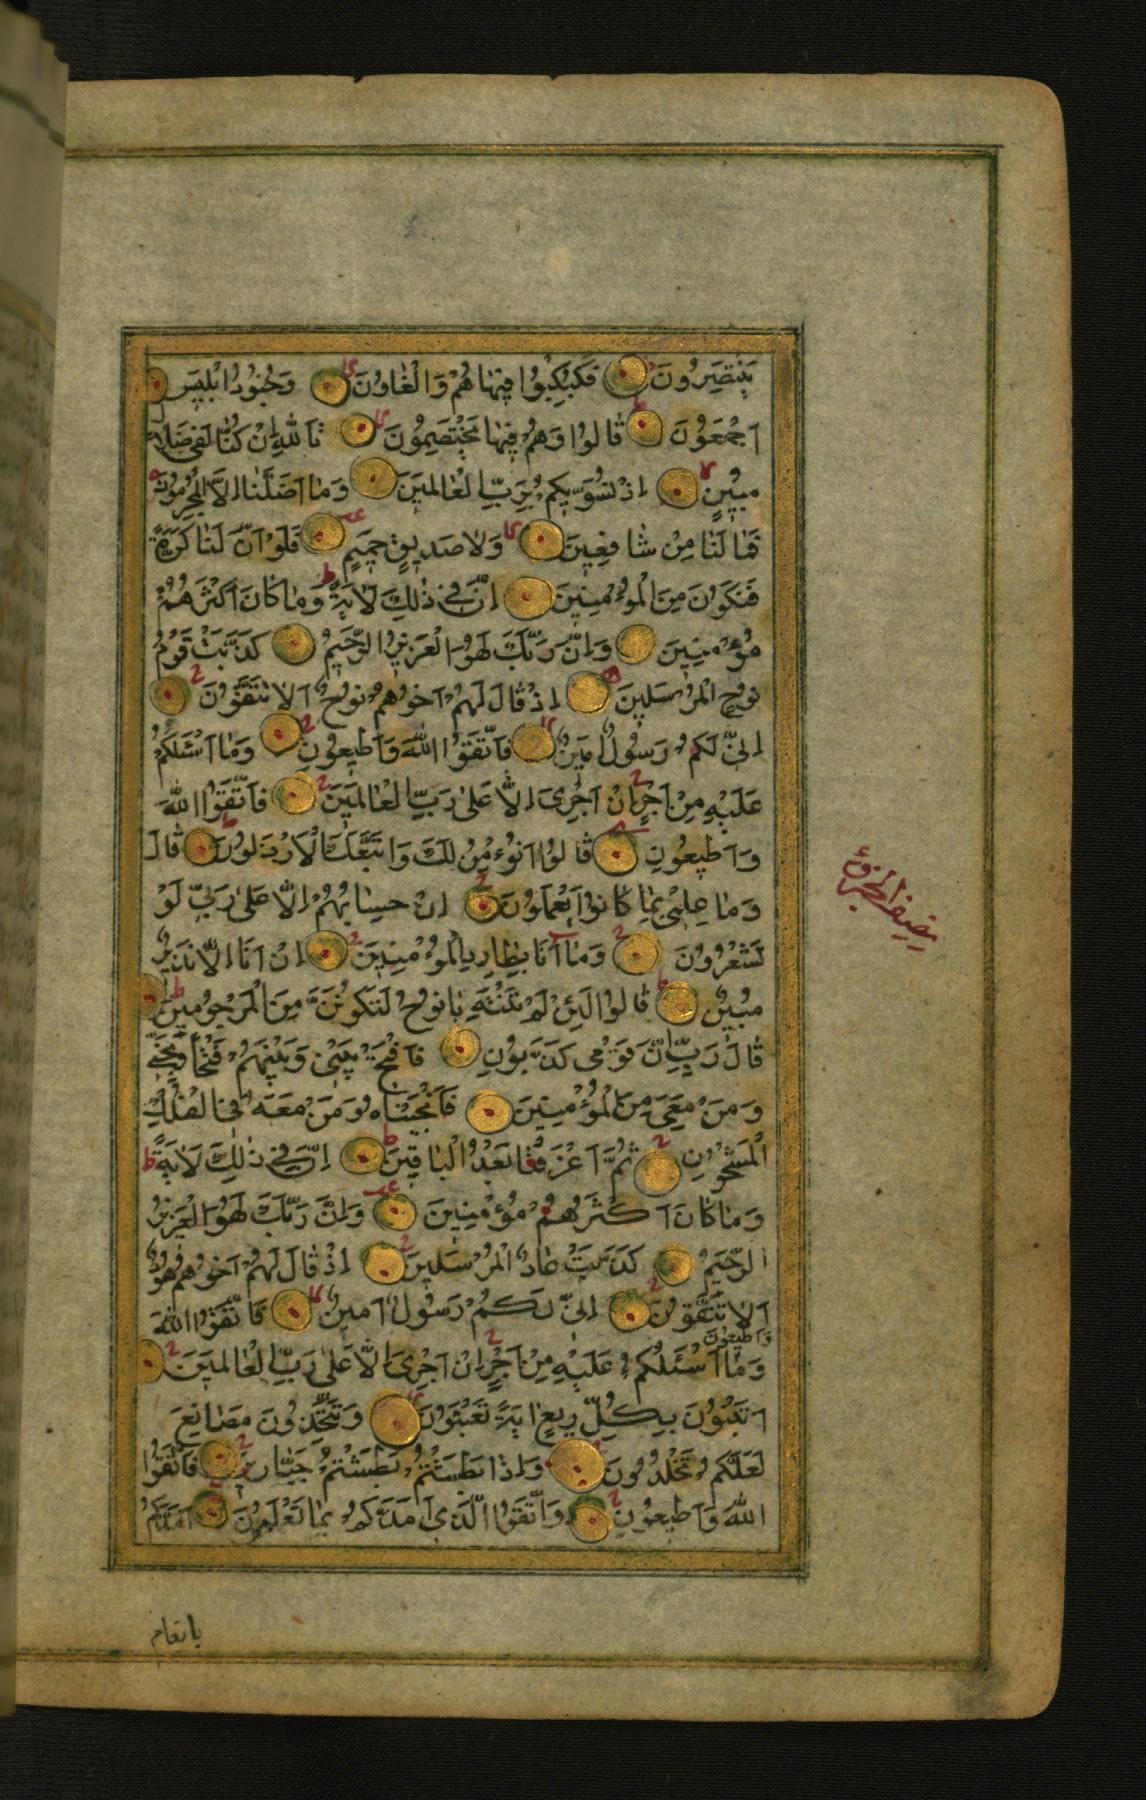 يَنْتَصِرُونَ فَكُبْكِبُوا فِيهَا هُمْ وَالْغَاوُنَ وَجُنُودُ ابْلِيسَ
اَجْمَعُونَ قَالُوا وَهُمْ فِيهَا يَخْتَصِمُونَ تَاللّٰهِ اِنْ كُنَّا لَفِي ضَلَالٍ
مُبِينٍ اِذْ نُسَوِّيكُمْ بِرَبِّ الْعَالَمِينَ وَمَا اَضَلَّنَا اِلَّا الْمُجْرِمُونَ
فَمَا لَنَا مِنْ شَافِعِينَ وَلَا صَدِيقٍ حَمِيمٍ فَلَوْ اَنَّ لَنَا كَرَّةً
فَنَكُونَ مِنَ الْمُؤْمِنِينَ اِنَّ فِي ذٰلِكَ لَاٰيَةً وَمَا كَانَ اَكْثَرُهُمْ
مُؤْمِنِينَ وَاِنَّ رَبَّكَ لَهُوَ الْعَزِيزُ الرَّحِيمُ كَذَّبَتْ قَوْمُ
نُوحٍ الْمُرْسَلِينَ اِذْ قَالَ لَهُمْ اَخُوهُمْ نُوحٌ اَلَا تَتَّقُونَ
اِنِّي لَكُمْ رَسُولٌ اَمِينٌ فَاتَّقُوا اللّٰهَ وَاَطِيعُونِ وَمَا اَسْئَلُكُمْ
عَلَيْهِ مِنْ اَجْرٍ اِنْ اَجْرِيَ اِلَّا عَلٰى رَبِّ الْعَالَمِينَ فَاتَّقُوا اللّٰهَ
وَاَطِيعُونِ قَالُوا اَنُؤْمِنُ لَكَ وَاتَّبَعَكَ الْاَرْذَلُونَ قَالَ
وَمَا عِلْمِي بِمَا كَانُوا يَعْمَلُونَ اِنْ حِسَابُهُمْ اِلَّا عَلٰى رَبِّي لَوْ
تَشْعُرُونَ وَمَا اَنَا بِطَارِدِ الْمُؤْمِنِينَ اِنْ اَنَا اِلَّا نَذِيرٌ
مُبِينٌ قَالُوا لَئِنْ لَمْ تَنْتَهِ يَا نُوحُ لَتَكُونَنَّ مِنَ الْمَرْجُومِينَ
قَالَ رَبِّ اِنَّ قَوْمِي كَذَّبُونِ فَافْتَحْ بَيْنِي وَبَيْنَهُمْ فَتْحًا وَنَجِّنِي
وَمَنْ مَعِيَ مِنَ الْمُؤْمِنِينَ فَاَنْجَيْنَاهُ وَمَنْ مَعَهُ فِي الْفُلْكِ
الْمَشْحُونِ ثُمَّ اَغْرَقْنَا بَعْدُ الْبَاقِينَ اِنَّ فِي ذٰلِكَ لَاٰيَةً
وَمَا كَانَ اَكْثَرُهُمْ مُؤْمِنِينَ وَاِنَّ رَبَّكَ لَهُوَ الْعَزِيزُ
الرَّحِيمُ كَذَّبَتْ عَادٌ الْمُرْسَلِينَ اِذْ قَالَ لَهُمْ اَخُوهُمْ هُودٌ
اَلَا تَتَّقُونَ اِنِّي لَكُمْ رَسُولٌ اَمِينٌ فَاتَّقُوا اللّٰهَ
وَاَطِيعُونَ
وَمَا اَسْئَلُكُمْ عَلَيْهِ مِنْ اَجْرٍ اِنْ اَجْرِيَ اِلَّا عَلٰى رَبِّ الْعَالَمِينَ
اَتَبْنُونَ بِكُلِّ رِيعٍ اٰيَةً تَعْبَثُونَ وَتَتَّخِذُونَ مَصَانِعَ
لَعَلَّكُمْ تَخْلُدُونَ وَاِذَا بَطَشْتُمْ بَطَشْتُمْ جَبَّارِينَ فَاتَّقُوا
اللّٰهَ وَاَطِيعُونِ وَاتَّقُوا الَّذِي اَمَدَّكُمْ بِمَا تَعْلَمُونَ اَمَدَّكُمْ
بانعام